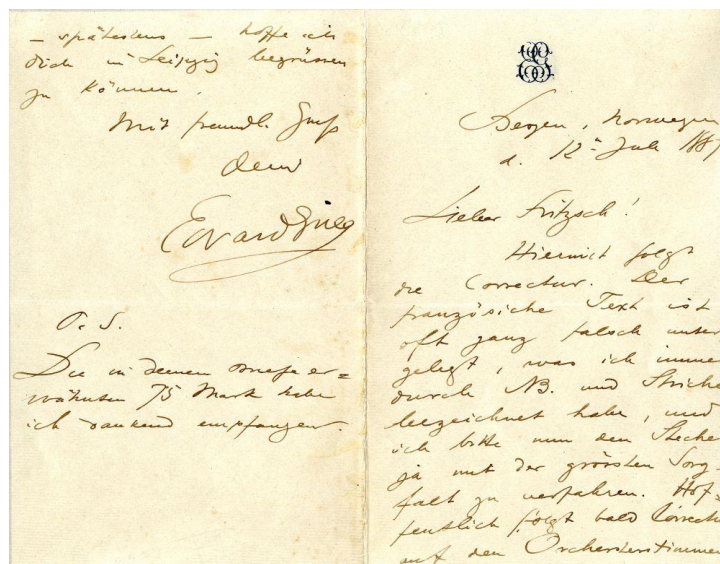 – spätestens – hoffe ich
dich in Leipzig begrüssen
zu können.
Mit freundl. Gruß
dein
Edvard Grieg
P. S.
Die in deinem Briefe er=
wähnten 75 Mark habe
ich dankend empfangen.
Bergen, Norwegen
d. 12. Juli
Lieber Fritzsch!
Hiermit folgt
die Correctur. Der
französiche Text ist
oft ganz falsch unter
gelegt, was ich imme
durch NB. und Striche
bezeichnet habe, und
ich bitte nun den Steche
ja mit der grössten Sorg-
falt zu verfahren. Hof=
fentlich folgt bald Correct
auf den Orchesterstimmen